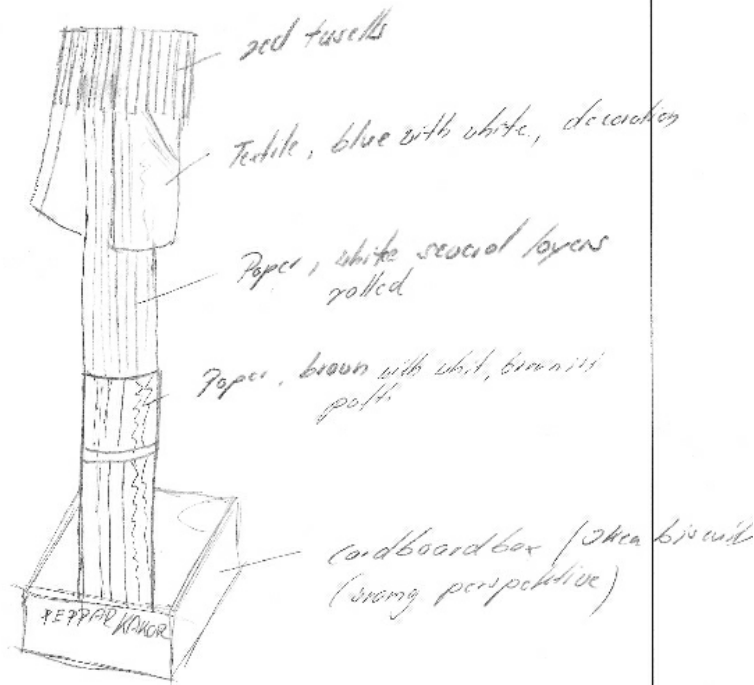 red tusells
Textile, blue with white, decoration
Paper, white several layers
rolled
Paper, brown with whit,
cardboardbox / biscuit
(wrong perspektive)
PEPPAR KAKOR